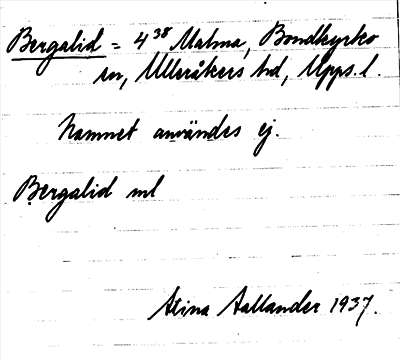 Bergalid = 4³⁸ Malma, Bondkyrko
sn, Ulleråkers hd, Upps. l.
Namnet användes ej.
Bergalid ml
Stina Aallander 1937.